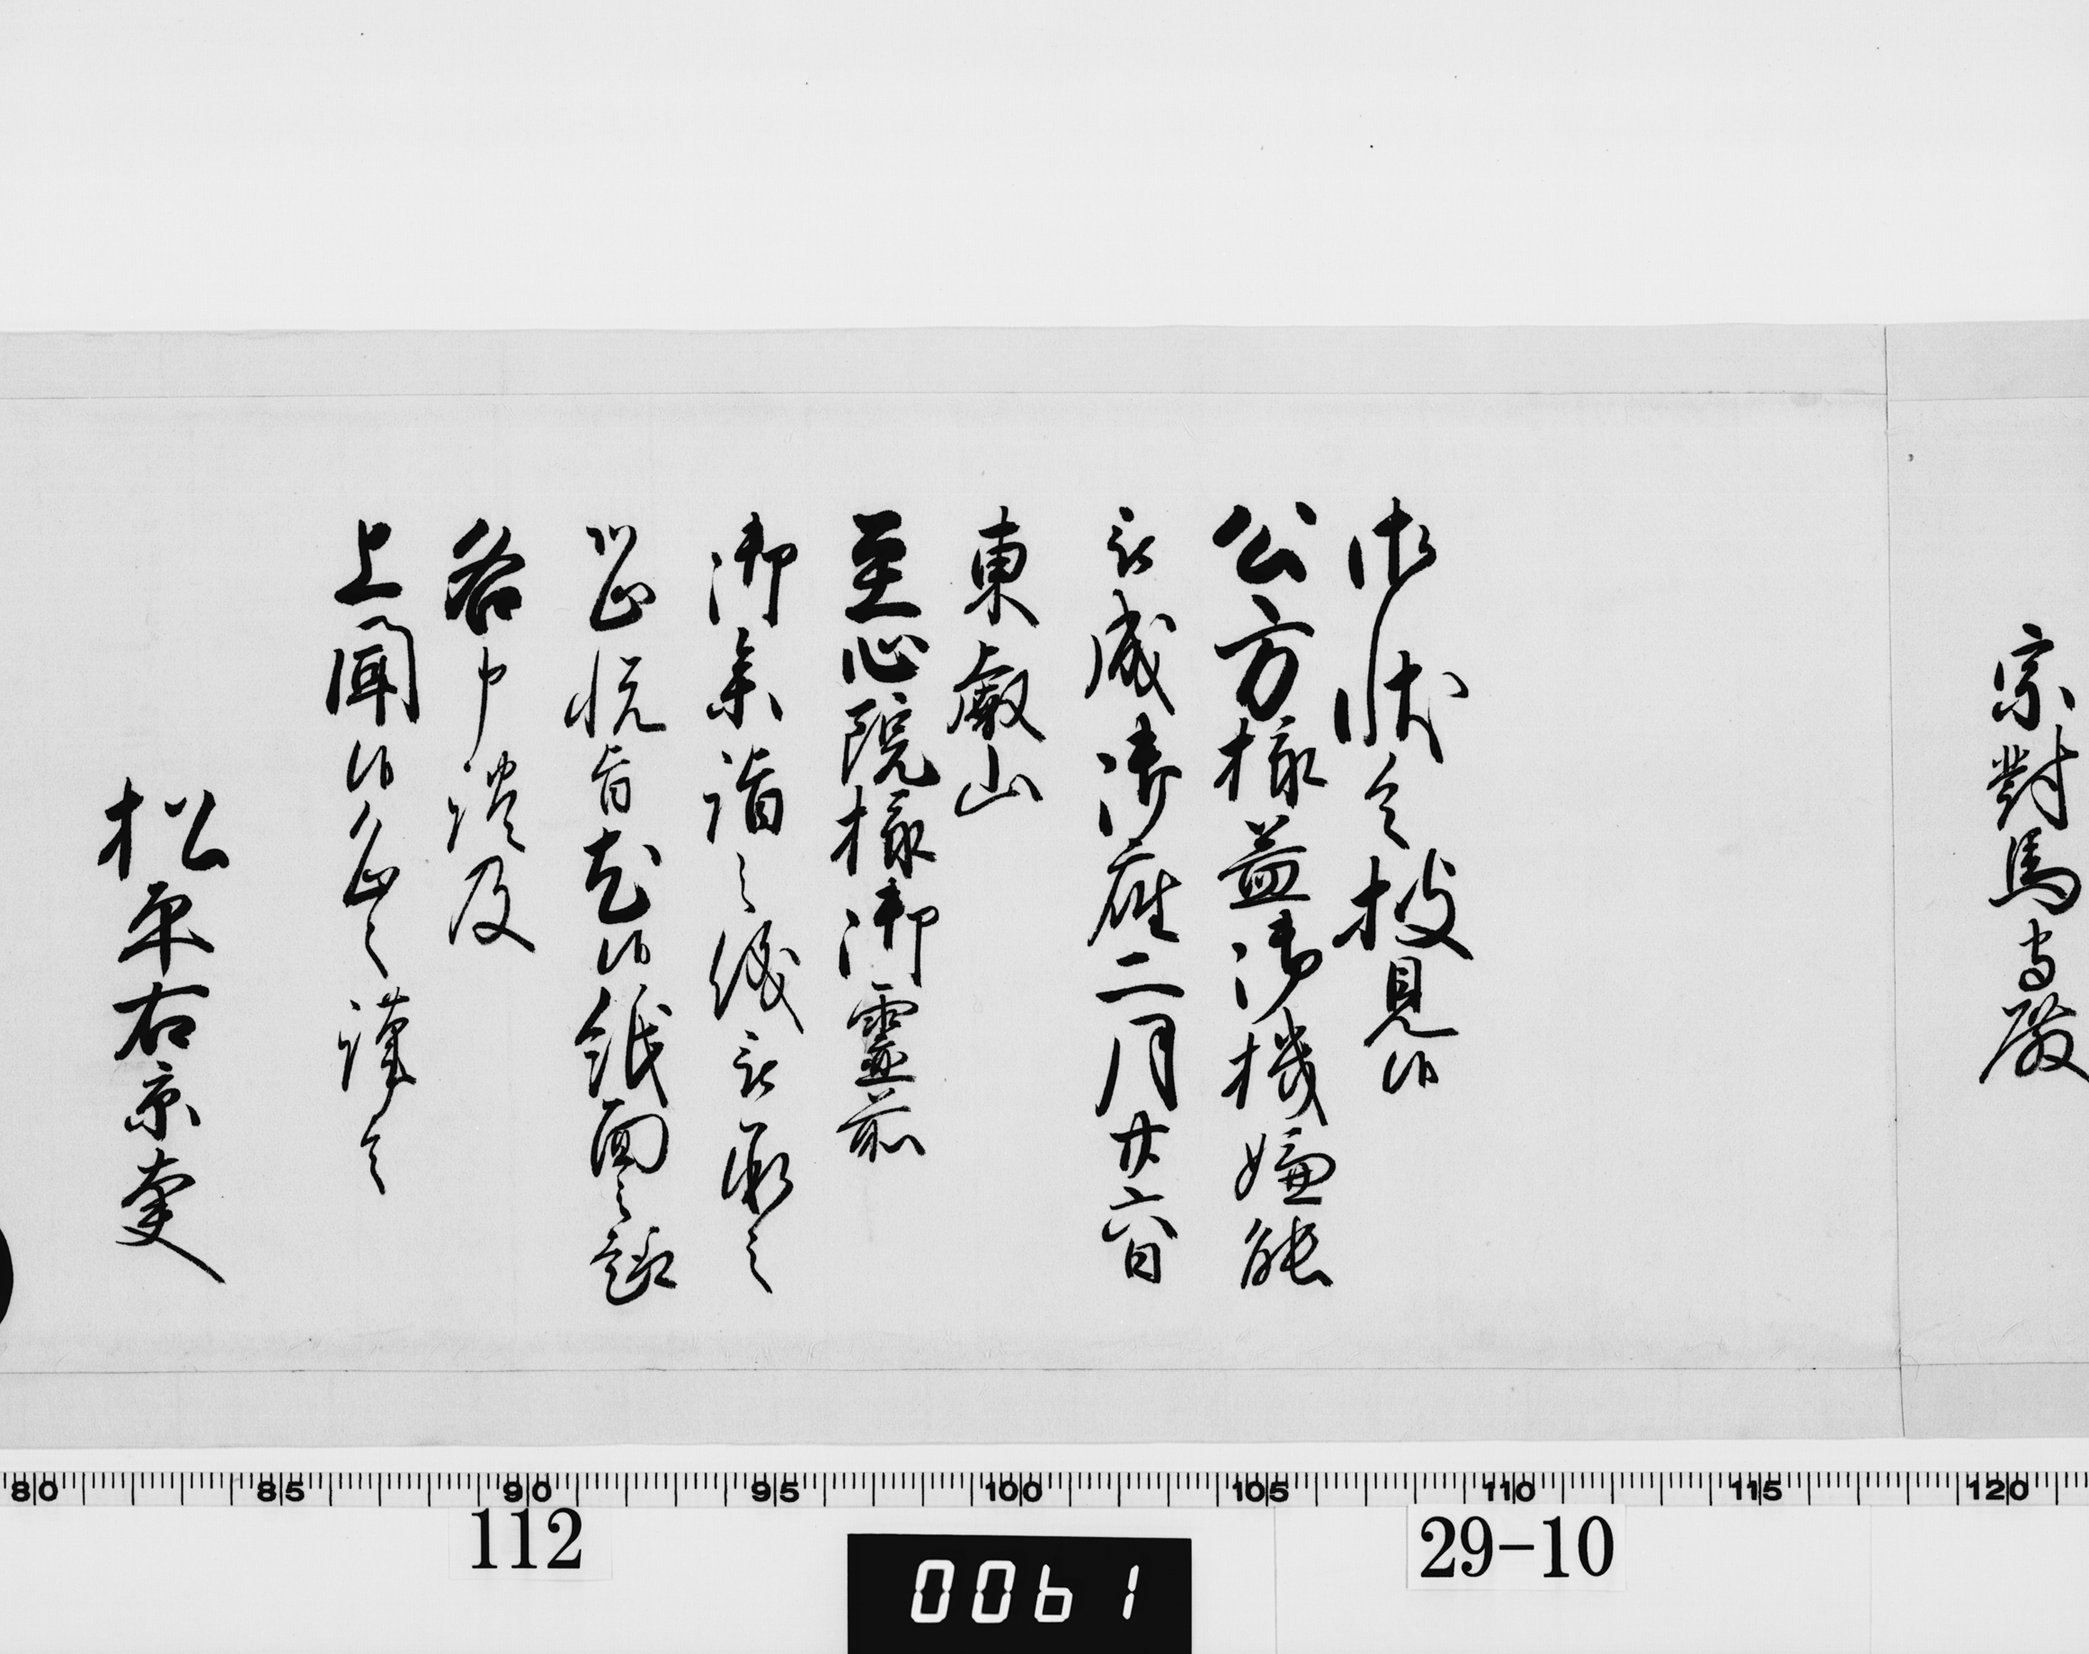 宗對馬守殿
御状令披見候
公方様益御機嫌能
被成御座二月廿六日
東叡山
至心院様御霊前
御参詣之儀被承之
恐悦旨尤候紙面之趣
各申談及
上聞候恐々謹言
松平右京大夫
80 85 90 95 100 105 110 115 120
112
0061
29-10